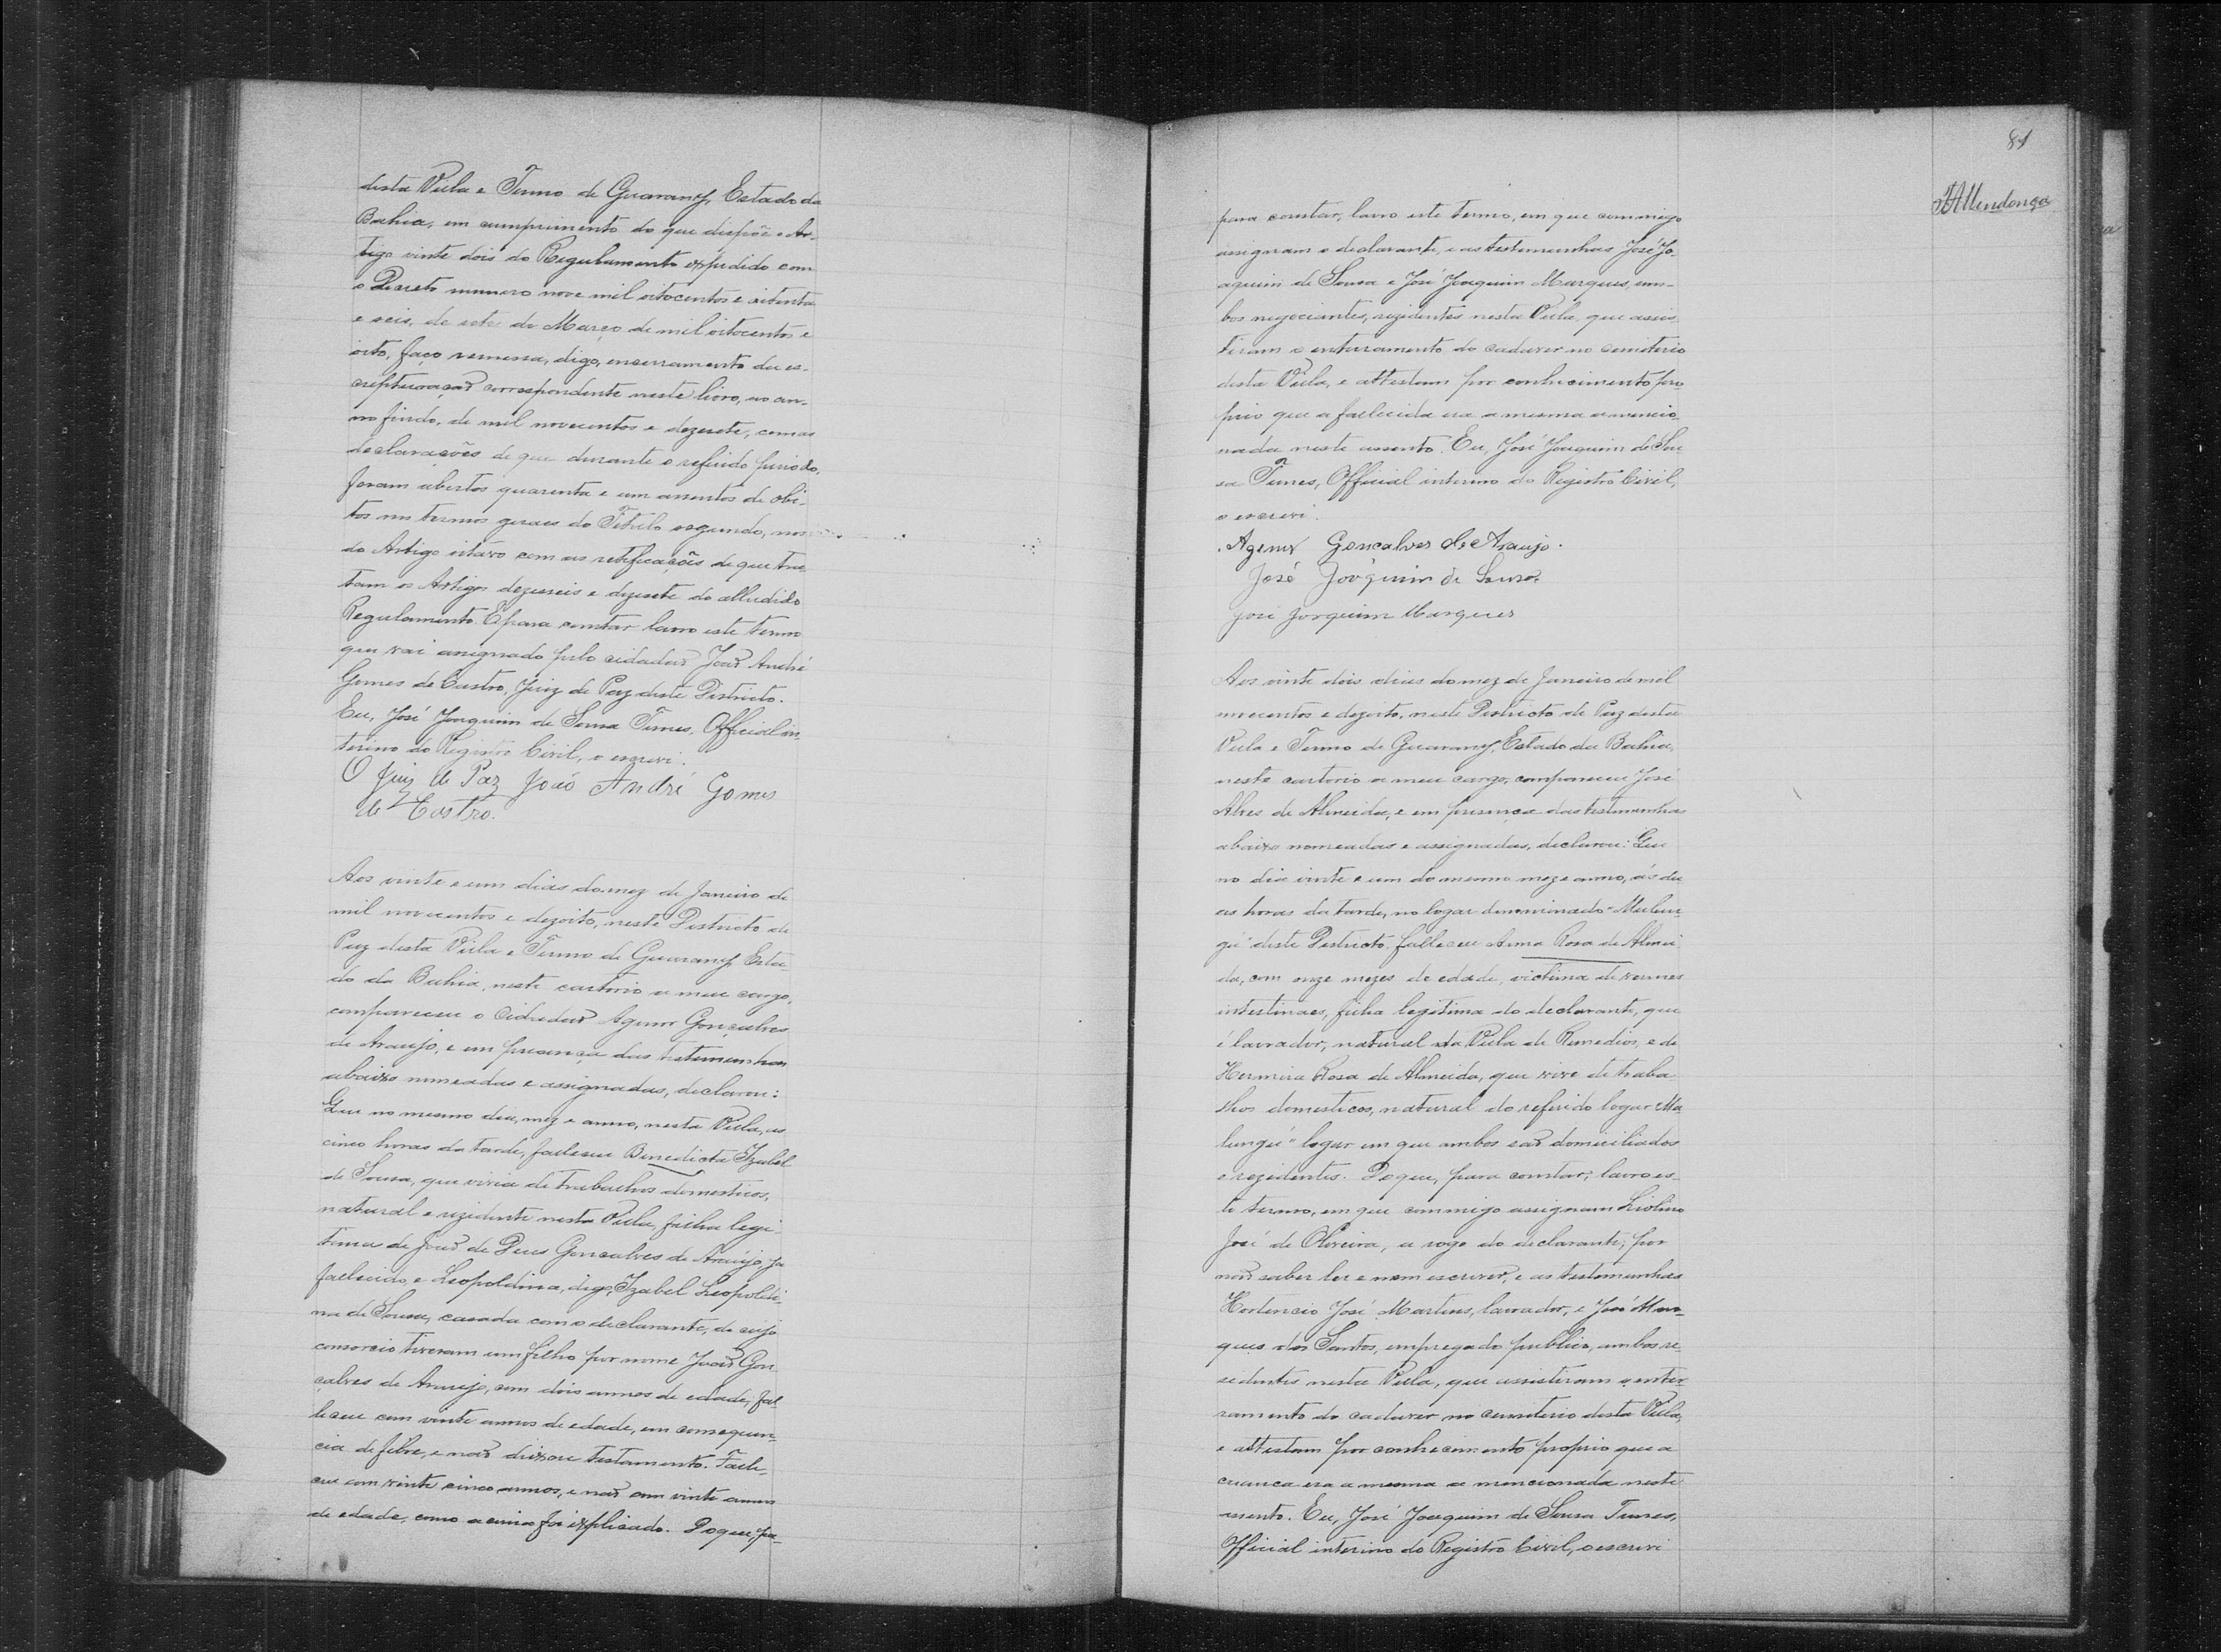 desta Villa e Termo de Guarany, Estado da
Bahia, em cumprimento do que dispõe o Ar-
tigo vinte dois do Regulamento expedido com
o Decreto numero nove mil oitocentos e oitenta
e seis, de sete de Março de mil oitocentos e
oito, faço remessa, digo, encerramento da es-
cripturação correspondente neste livro, ao an-
no findo, de mil novecentos e dezesete, com as
declarações de que durante o referido periodo,
foram abertos quarenta e um assentos de obi-
tos nos termos geraes do Titulo segundo, nos
do Artigo oitavo com as retificações de que tra-
tam os Artigos dezeseis e dezesete do alludido
Regulamento. E para constar lavro este termo
que vai assignado pelo cidadão João André
Gomes de Castro, Juiz de Paz deste Districto.
Eu, José Joaquim de Sousa Tunes, Official in-
terino do Registro Civil, o escrevi.
O Juiz de Paz João André Gomes
de Castro.
Aos vinte e um dias do mez de Janeiro de
mil novecentos e dezoito, neste Districto de
Paz desta Villa e Termo de Guarany, Esta-
do da Bahia, neste cartorio a meu cargo,
compareceu o Cidadão Agenor Gonçalves
de Araujo, e em presença das testemunhas
abaixo nomeadas e assignadas, declarou:
Que no mesmo dia, mez e anno, nesta Villa, as
cinco horas da tarde, faleceu Benedicta Izabel
de Sousa, que vivia de trabalhos domesticos,
natural e rezidente nesta Villa, filha legi-
tima de João de Deus Gonçalves de Araujo, ja
fallecido, e Leopoldina, digo, Izabel Leopoldi-
na de Sousa, casada com o declarante, de cujo
consorcio tiveram um filho por nome João Gon-
çalves de Araujo, com dois annos de edade, fal-
leceu com vinte annos de edade, em consequen-
cia de febre, e não deixou testamento. Falle-
ceu com vinte cinco annos, e não com vinte annos
de edade, como acima foi explicado. Do que, pa-
81
Mendonça
para constar, lavro este termo, em que commigo
assignam o declarante, e as testemunhas José Jo-
aquim de Sousa e José Joaquim Marques, am-
bos negociantes, rezidentes nesta Villa, que assis-
tiram o enterramento do cadaver no cemiterio
desta Villa, e attestam por conhecimento pro-
prio que a fallecida era a mesma a mencio-
nada neste assento. Eu, José Joaquim de Sou-
sa Tunes, Official interino do Registro Civil,
o escrevi.
Agenor Gonçalves de Araujo.
José Joaquim de Sousa.
José Joaquim Marques
Aos vinte dois dias do mez de Janeiro de mil
novecentos e dezoito, neste Districto de Paz desta
Villa e Termo de Guarany, Estado da Bahia,
neste cartorio a meu cargo, compareceu José
Alves de Almeida, e em presença das testemunhas
abaixo nomeadas e assignadas, declarou: Que
no dia vinte e um do mesmo mez e anno, ás du-
as horas da tarde, no logar denominado "Mulun-
gú" deste Districto, falleceu Anna Rosa de Almei-
da, com onze mezes de edade, victima de vermes
intestinaes, filha legitima do declarante, que
é lavrador, natural da Villa de Remedios, e de
Hermira Rosa de Almeida, que vive de traba-
lhos domesticos, natural do referido logar Mu-
lungú" logar em que ambos são domiciliados
e rezidentes. Do que, para constar, lavro es-
te termo, em que commigo assignam Liolino
José de Oliveira, a rogo do declarante, por
não saber ler e nem escrever, e as testemunhas
Hortencio José Martins, lavrador, e José Mar-
ques dos Santos, empregado publico, ambos re-
sedentes nesta Villa, que assistiram o enter-
ramento do cadaver no cemiterio desta Villa,
e attestam por conhecimento proprio que a
creança era a mesma a mencionada neste
assento. Eu, José Joaquim de Sousa Tunes,
Official interino do Registro Civil, o escrevi